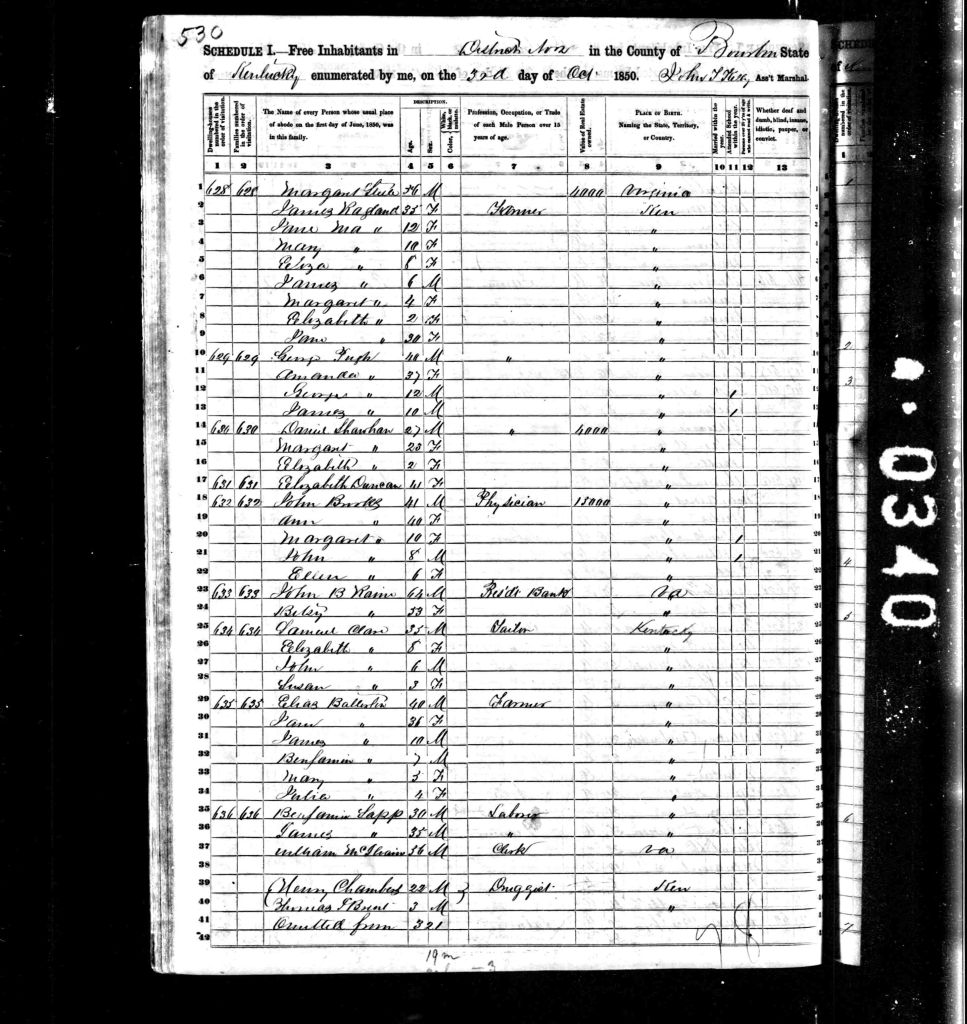 530
SCHEDULE I.—Free Inhabitants in District No 2 in the County of Bourbon State
of Kentucky enumerated by me, on the 3rd day of Oct 1850. John Ass't Marshal.
Dwelling-houses numbered in the order of visitation. Families numbered in the order of visitation. The Name of every Person whose usual place of abode on the first day of June, 1850, was in this family. DESCRIPTION. Age. Sex. Color, White, black, or mulatto. Profession, Occupation, or Trade of each Male Person over 15 years of age. Value of Real Estate owned. PLACE OF BIRTH. Naming the State, Territory, or Country. Married within the year. Attended School within the year. Persons over 20 y'rs of age who cannot read & write. Whether deaf and dumb, blind, insane, idiotic, pauper, or convict.
1 2 3 4 5 6 7 8 9 10 11 12 13
1 628 628 Margaret 56 M 4000 Virginia
2 James Ragland 35 F Farmer Ken
3 Jane Ma " 12 F "
4 Mary " 10 F "
5 Eliza " 8 F "
6 James " 6 M "
7 Margaret " 4 F "
8 Elizabeth " 2 F "
9 Jane " 30 F "
10 629 629 George Pugh 40 M " "
11 Amanda " 37 F "
12 George " 12 M " 1
13 James " 10 M " 1
14 630 630 Daniel Shawhan 27 M " 4000 "
15 Margaret " 23 F "
16 Elizabeth " 2 F "
17 631 631 Elizabeth Duncan 41 F "
18 632 632 John Brooks 41 M Physician 13000 "
19 Ann " 40 F "
20 Margaret " 10 F " 1
21 John " 8 M " 1
22 Ellen " 6 F "
23 633 633 John B Raine 64 M Resdt Bank Va
24 Betsy " 53 F "
25 634 634 Samuel Clare 35 M Tailor Kentucky
26 Elizabeth " 8 F "
27 John " 6 M "
28 Susan " 3 F "
29 635 635 Elias Batterton 40 M Farmer "
30 Jane " 36 F "
31 James " 10 M "
32 Benjamin " 7 M "
33 Mary " 5 F "
34 Julia " 4 F "
35 636 636 Benjamin Sapp 30 M Laborer "
36 James " 35 M " "
37 William McIlvain 56 M Clerk Va
38
39 Henry Chambers 22 M Druggist Ken
40 Thomas T Brent 3 M "
41 Omitted from 321
42
19 m
3
0340